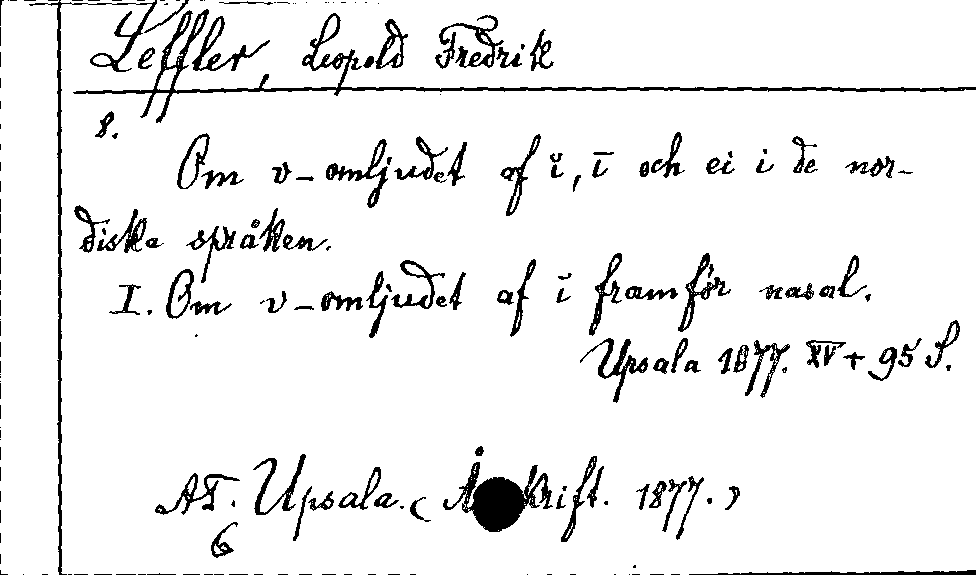 Leffler, Leopold Fredrik
8.
Om v-omljudet af ĭ, ī och ei i de nor-
diska språken.
I. Om v-omljudet af ĭ framför nasal.
Upsala 1877. XV + 95 S.
AT. Upsala. ( krift. 1877. )
6